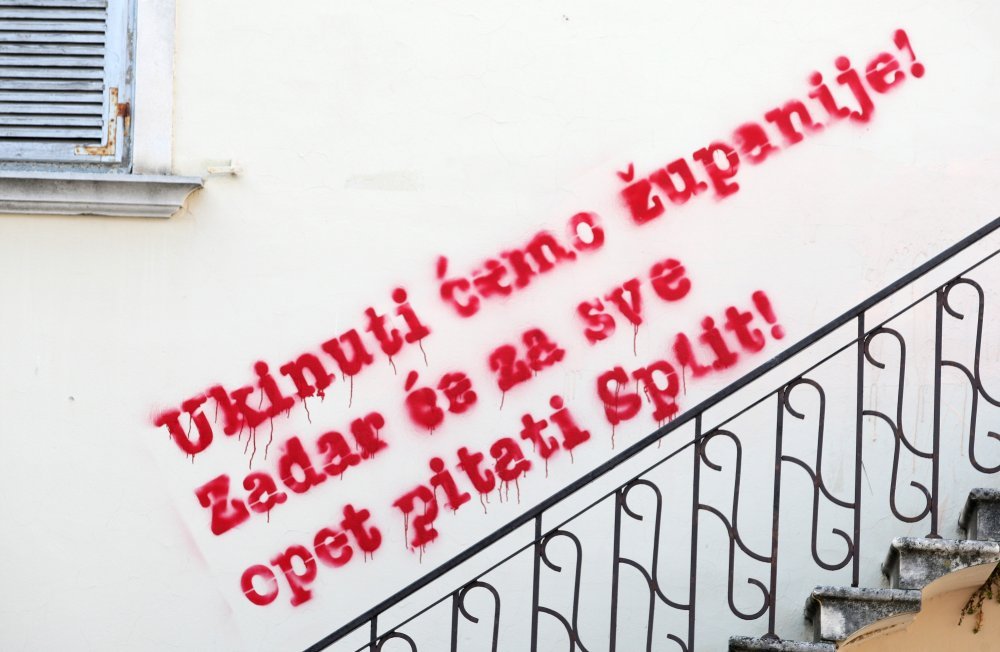 Ukinuti ćemo županije!
Zadar će za sve
opet pitati Split!